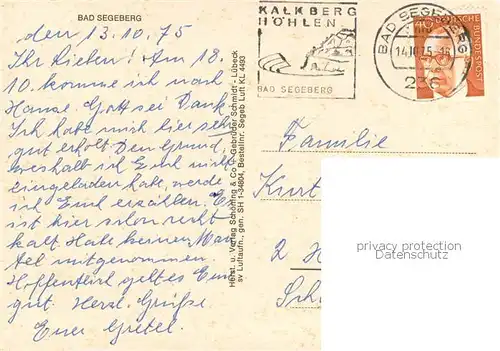 BAD SEGEBERG
den 13.10.75
Ihr Lieben! Am 18.
10. komme ich nach
Hause. Gott sei Dank.
Ich habe mich hier sehr
gut erholt. Den Grund,
weshalb ich Euch nicht
eingeladen habe, werde
ich Euch erzählen. Es
ist hier schon recht
kalt. Habe keinen Man-
tel mitgenommen.
Hoffentlich geht es Euch
gut. Herzl. Grüße
Eure Gretel.
Herst. u. Verlag Schöning & Co + Gebrüder Schmidt - Lübeck
sv Luftaufn., gen. SH 1-34804, Bestellnr. Segeb Luft KL 4493
KALKBERG
HÖHLEN
BAD SEGEBERG
BAD SEGEBERG
14.10.75-16
40
DEUTSCHE
BUNDESPOST
Familie
Kurt
2 H
Sch
privacy protection
Datenschutz